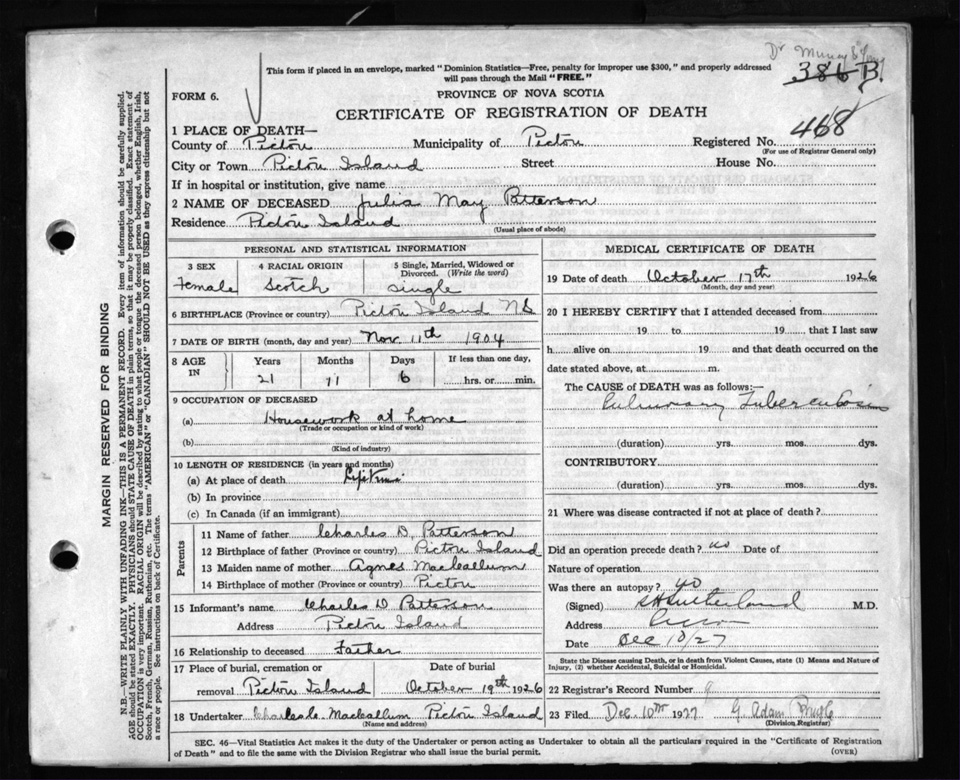 Dr Murray
This form if placed in an envelope, marked "Dominion Statistics—Free, penalty for improper use $300," and properly addressed
will pass through the Mail "FREE."
386 B.
FORM 6.
PROVINCE OF NOVA SCOTIA
CERTIFICATE OF REGISTRATION OF DEATH
1 PLACE OF DEATH—
County of Pictou Municipality of Pictou Registered No. 468
(For use of Registrar General only)
City or Town Pictou Island Street House No.
If in hospital or institution, give name
2 NAME OF DECEASED Julia May Patterson
Residence Pictou Island
(Usual place of abode)
PERSONAL AND STATISTICAL INFORMATION
3 SEX 4 RACIAL ORIGIN 5 Single, Married, Widowed or
Divorced. (Write the word)
Female Scotch Single
6 BIRTHPLACE (Province or country) Pictou Island NS
7 DATE OF BIRTH (month, day and year) Nov. 11th 1904
8 AGE IN Years Months Days If less than one day,
21 11 6 hrs. or min.
9 OCCUPATION OF DECEASED
(a) Housework at home
(Trade or occupation or kind of work)
(b)
(Kind of industry)
10 LENGTH OF RESIDENCE (in years and months)
(a) At place of death Lifetime
(b) In province
(c) In Canada (if an immigrant)
Parents
11 Name of father Charles D. Patterson
12 Birthplace of father (Province or country) Pictou Island
13 Maiden name of mother Agnes MacCallum
14 Birthplace of mother (Province or country) Pictou
15 Informant's name Charles D Patterson
Address Pictou Island
16 Relationship to deceased Father
17 Place of burial, cremation or Date of burial
removal Pictou Island October 19th 1926
18 Undertaker MacCallum Pictou Island
(Name and address)
MEDICAL CERTIFICATE OF DEATH
19 Date of death October 17th 1926
(Month, day and year)
20 I HEREBY CERTIFY that I attended deceased from
19 to 19 that I last saw
h alive on 19 and that death occurred on the
date stated above, at m.
The CAUSE of DEATH was as follows:—
Pulmonary Tuberculosis
(duration) yrs. mos. dys.
CONTRIBUTORY
(duration) yrs. mos. dys.
21 Where was disease contracted if not at place of death?
Did an operation precede death? no Date of
Nature of operation
Was there an autopsy? no
(Signed) S H Sutherland M.D.
Address Pictou
Date Dec 10/27
State the Disease causing Death, or in death from Violent Causes, state (1) Means and Nature of
Injury, (2) whether Accidental, Suicidal or Homicidal.
22 Registrar's Record Number 9
23 Filed Dec. 10th 1927 G. Adam
(Division Registrar)
SEC. 46—Vital Statistics Act makes it the duty of the Undertaker or person acting as Undertaker to obtain all the particulars required in the "Certificate of Registration
of Death" and to file the same with the Division Registrar who shall issue the burial permit. (OVER)
MARGIN RESERVED FOR BINDING
N.B.—WRITE PLAINLY WITH UNFADING INK—THIS IS A PERMANENT RECORD. Every item of information should be carefully supplied.
AGE should be stated EXACTLY. PHYSICIANS should STATE CAUSE OF DEATH in plain terms, so that it may be properly classified. Exact statement of
OCCUPATION is very important. RACIAL ORIGIN will be described by stating to what people or tongue the deceased person belonged, whether English, Irish,
Scotch, French, German, Russian, Ruthenian, etc. The terms "AMERICAN" or "CANADIAN" SHOULD NOT BE USED as they express citizenship but not
a race or people. See instructions on back of Certificate.